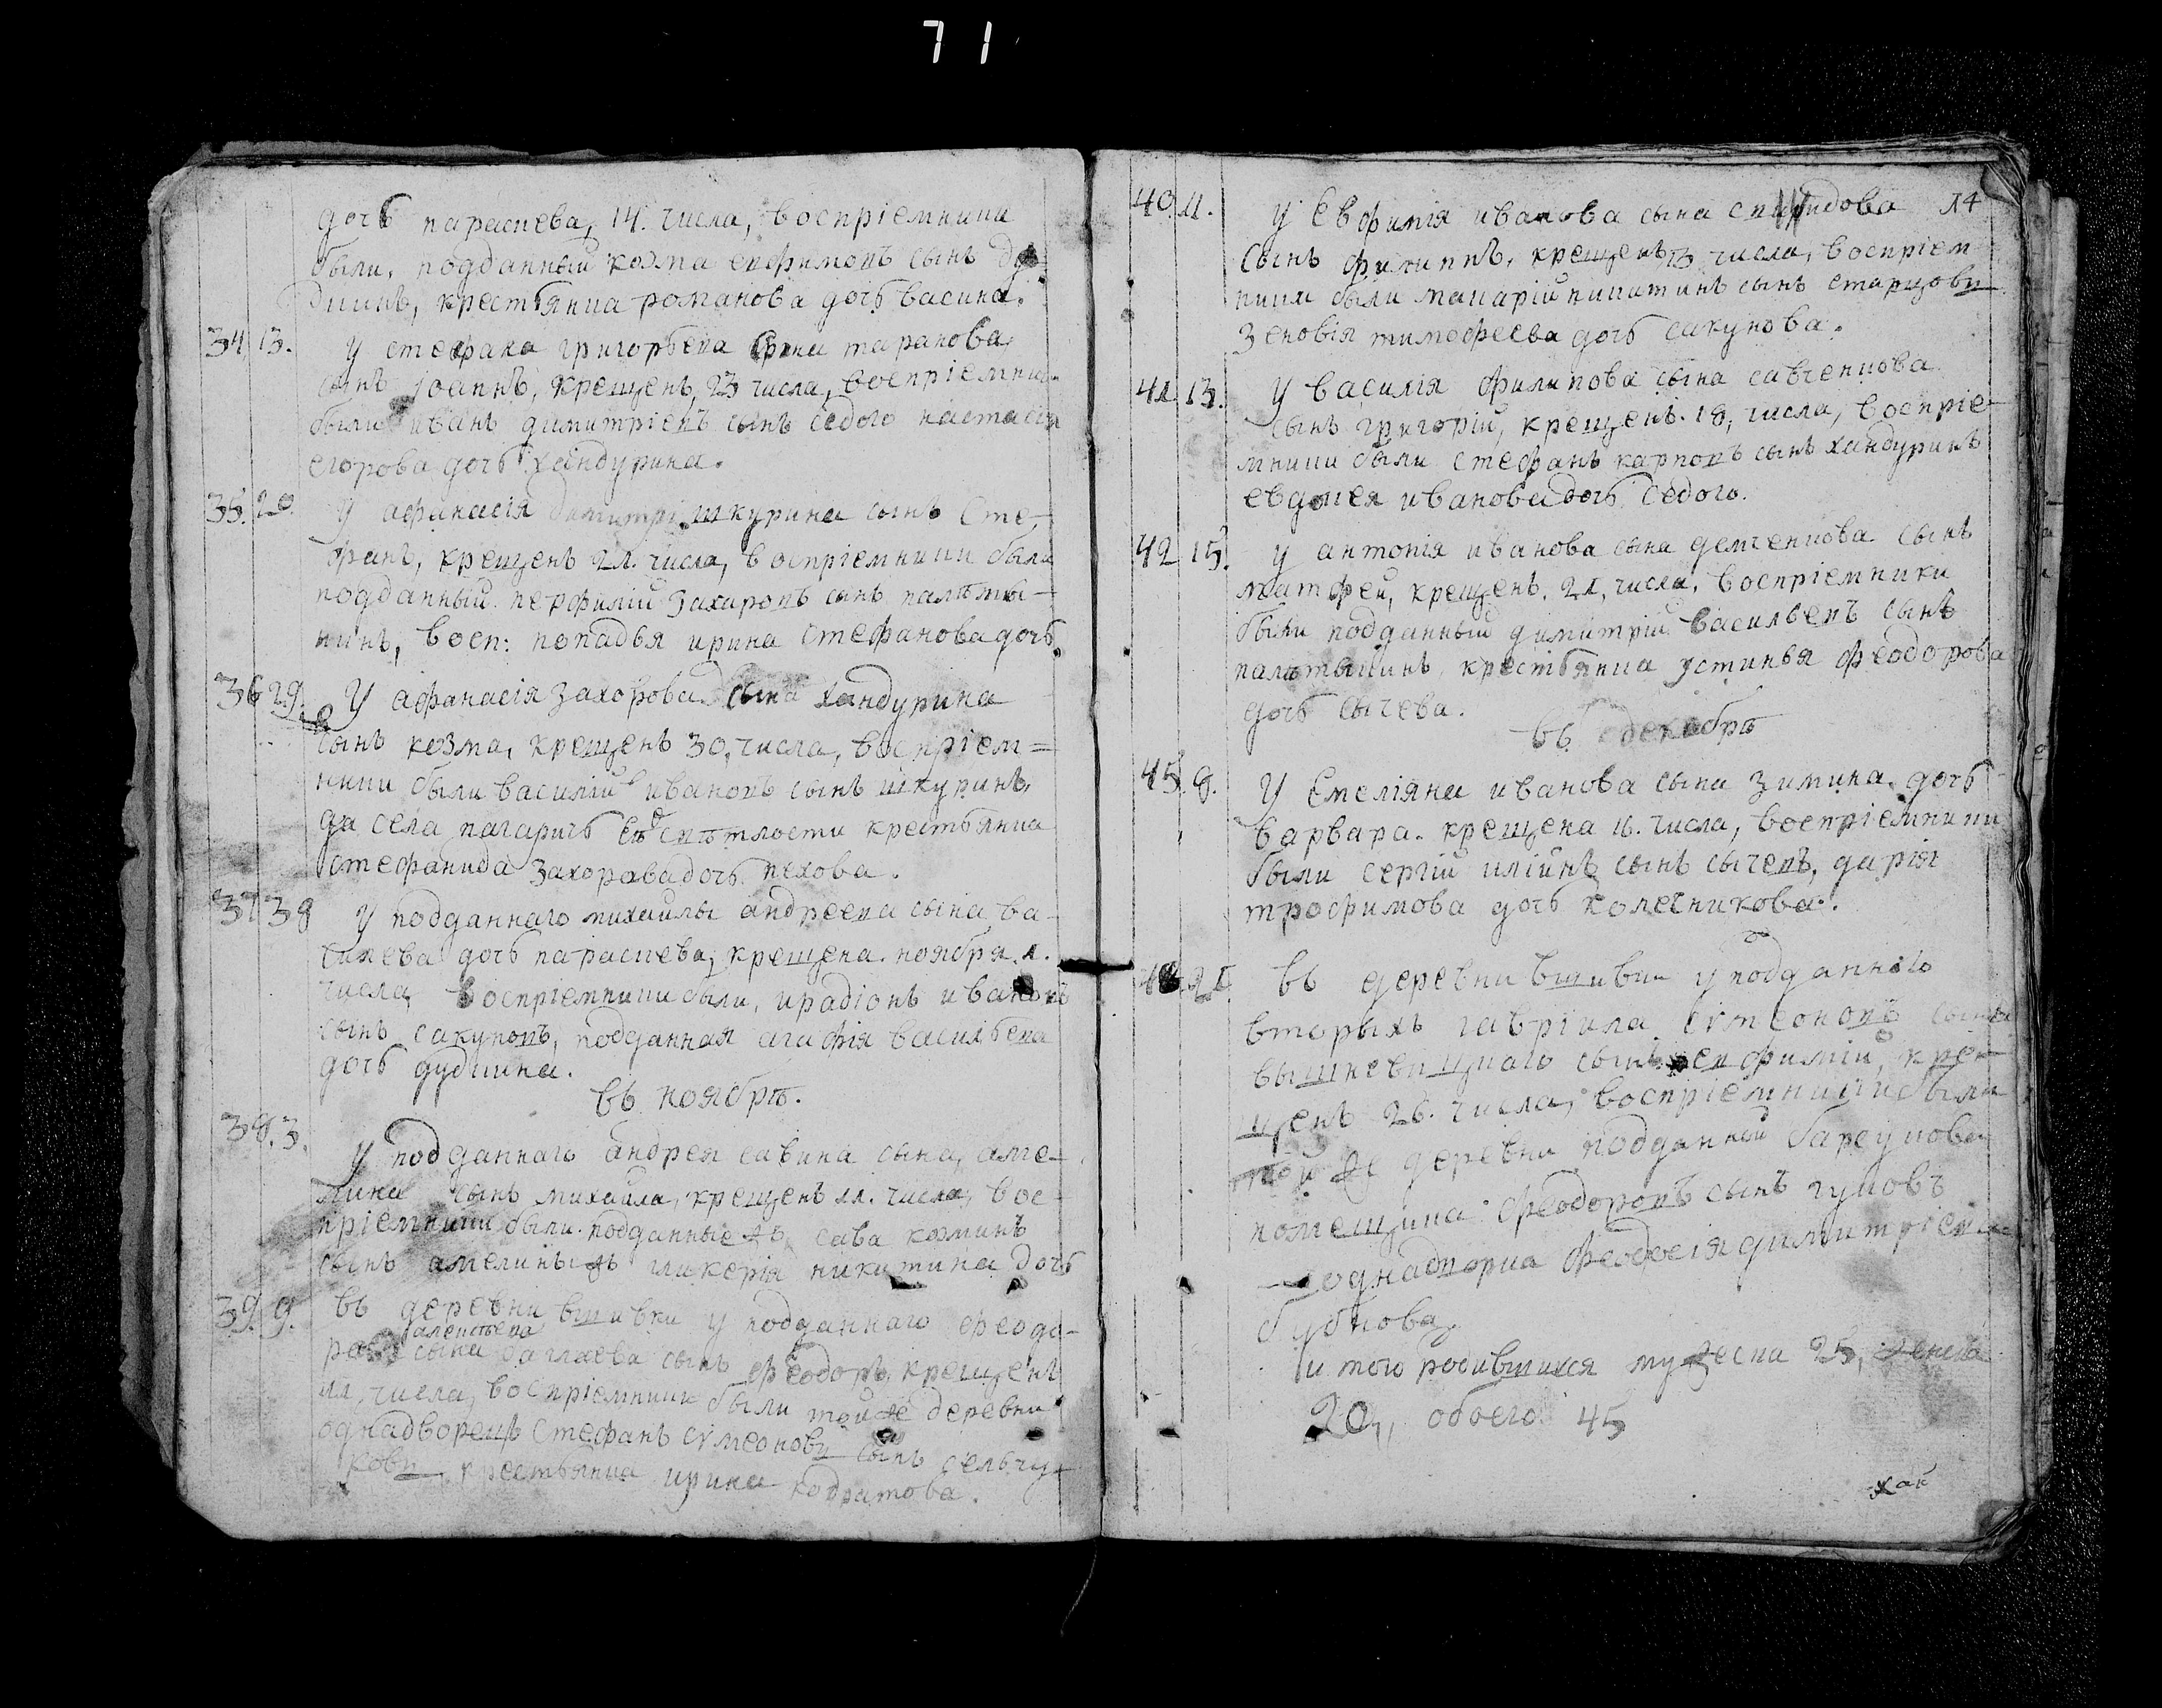 71
дочь параскева, 14. числа, воспріемники
были, подданный козма евфимовъ сынъ
крестьянка романова дочь васина.
34 13. У стефана григорьева сына таранова
сынъ іоаннъ, крещенъ, 23 числа, воспріемники
были иванъ димитріевъ сынъ седого настасія
егорова дочь хандурина.
35. 20. У афанасія димитрі шкурина сынъ Сте-
фанъ, крещенъ 21. числа, воспріемники были
подданный перфилій захаровъ сынъ палъты-
нинъ, восп: попадья ирина Стефанова дочь.
36 29. У афанасія захорова сына хандурина
сынъ козма, крещенъ 30, числа, воспріем=
ники были василій ивановъ сынъ шкуринъ,
да села свѣтлости крестьянка
стефанида захорова дочь пехова.
37 У подданнаго михайлы андреева сына ва-
силева дочь параскева, крещена. ноября. 1.
числа, воспріемники были, ирадіонъ ивановъ
сынъ сакуновъ, подданная агафія васильева
дочь дудкина.
въ ноябрѣ.
38. 3. У подданнаго андрея савина сына, аме-
лина сынъ михаила, крещенъ 11. числа, вос-
пріемники были подданные жъ, сава козминъ
сынъ амелинъ жъ гликерія никитина дочь
39 9. въ деревни вшивки у подданнаго феодо-
ра алексѣева сына сынъ феодоръ, крещенъ
11, числа, воспріемники были той же деревни
однадворецъ Стефанъ сѵмеоновъ сынъ сельчу-
ковъ, крестьянка ирина кодратова.
40. 11. У Евфимія иванова сына спиридова 14
сынъ филиппъ, крещенъ, 13, числа, воспріем
ники были макарій никитинъ сынъ старцовъ
зеновія тимофеева дочь сакунова.
41. 13. У василія филипова сына савченкова
сынъ григорій, крещенъ. 18, числа, воспріе-
мники были стефанъ карповъ сынъ хандуринъ
евдокея иванова дочь седого.
42 15. У антонія иванова сына демченкова сынъ
матфей, крещенъ. 21, числа, воспріемники
были подданный димитрій васильевъ сынъ
палътынинъ крестьянка устинья феодорова
дочь сычева.
въ декабрѣ
43. 8. У Емеліяна иванова сына зимина. дочь
варвара. крещена 16. числа, воспріемники
были сергій илійнъ сынъ сычевъ, дарія
трофимова дочь колесникова.
21. въ деревни вшивки у подданнаго
вторыхъ гавріила сѵмеоновъ сына
вышневицкаго сынъ евфимій, кре-
щенъ 26. числа, воспріемники были
той же деревни подданный барсукова
помещика феодоровъ сынъ гуковъ
однадворка феодосія димитріева
бубнова.
и того родившихся мужеска 25, женска
20, обоего 45